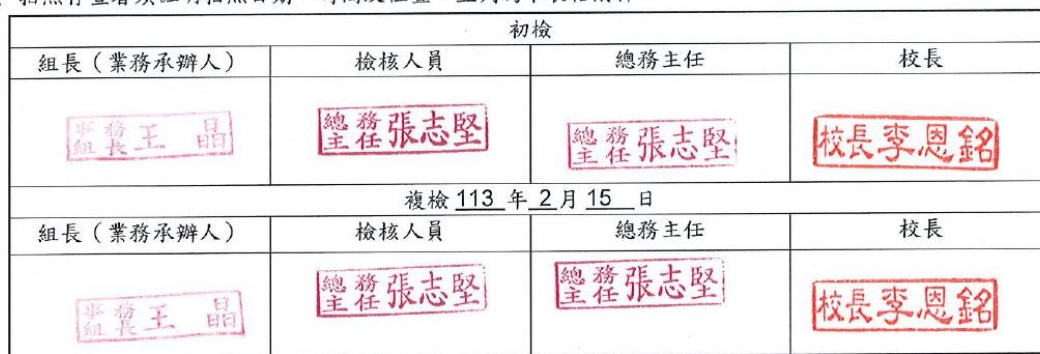 初檢
組長（業務承辦人） 檢核人員 總務主任 校長
事務組長 王晶 總務主任 張志堅 總務主任 張志堅 校長 李恩銘
複檢 113 年 2 月 15 日
組長（業務承辦人） 檢核人員 總務主任 校長
事務組長 王晶 總務主任 張志堅 總務主任 張志堅 校長 李恩銘